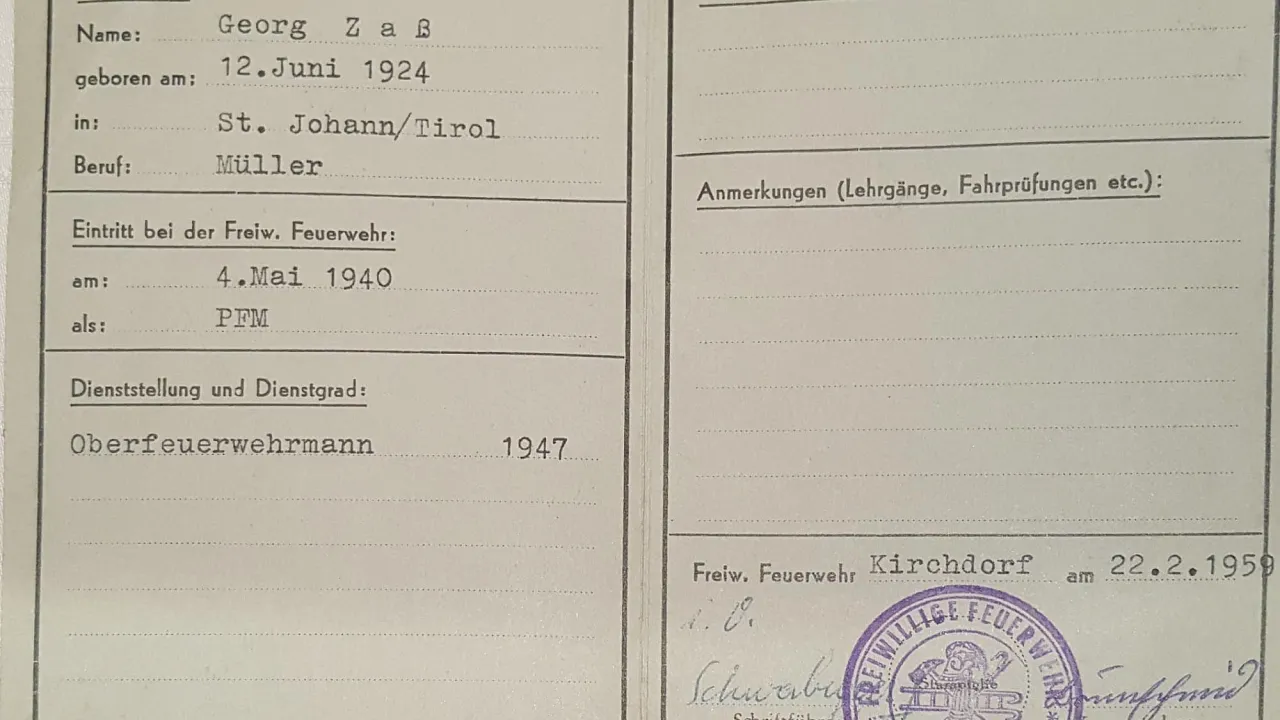 Name: Georg Zaß
geboren am: 12.Juni 1924
in: St. Johann/Tirol
Beruf: Müller
Eintritt bei der Freiw. Feuerwehr:
am: 4.Mai 1940
als: PFM
Dienststellung und Dienstgrad:
Oberfeuerwehrmann 1947
Anmerkungen (Lehrgänge, Fahrprüfungen etc.):
Freiw. Feuerwehr Kirchdorf am 22.2.1959
FREIWILLIGE FEUERWEHR